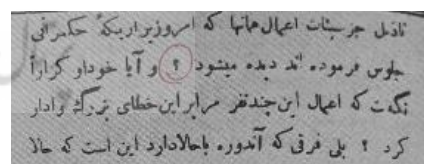 ناذل جزئیات اعمال همانها که امروز براریکهٔ حکمرانی
جلوس فرموده اند دیده میشود ؟ و آیا خود او کراراً
نگفت که اعمال این چند نفر مرا بر این خطای بزرگ وادار
کرد ؟ بلی فرقی که آندوره با حالا دارد این است که حالا